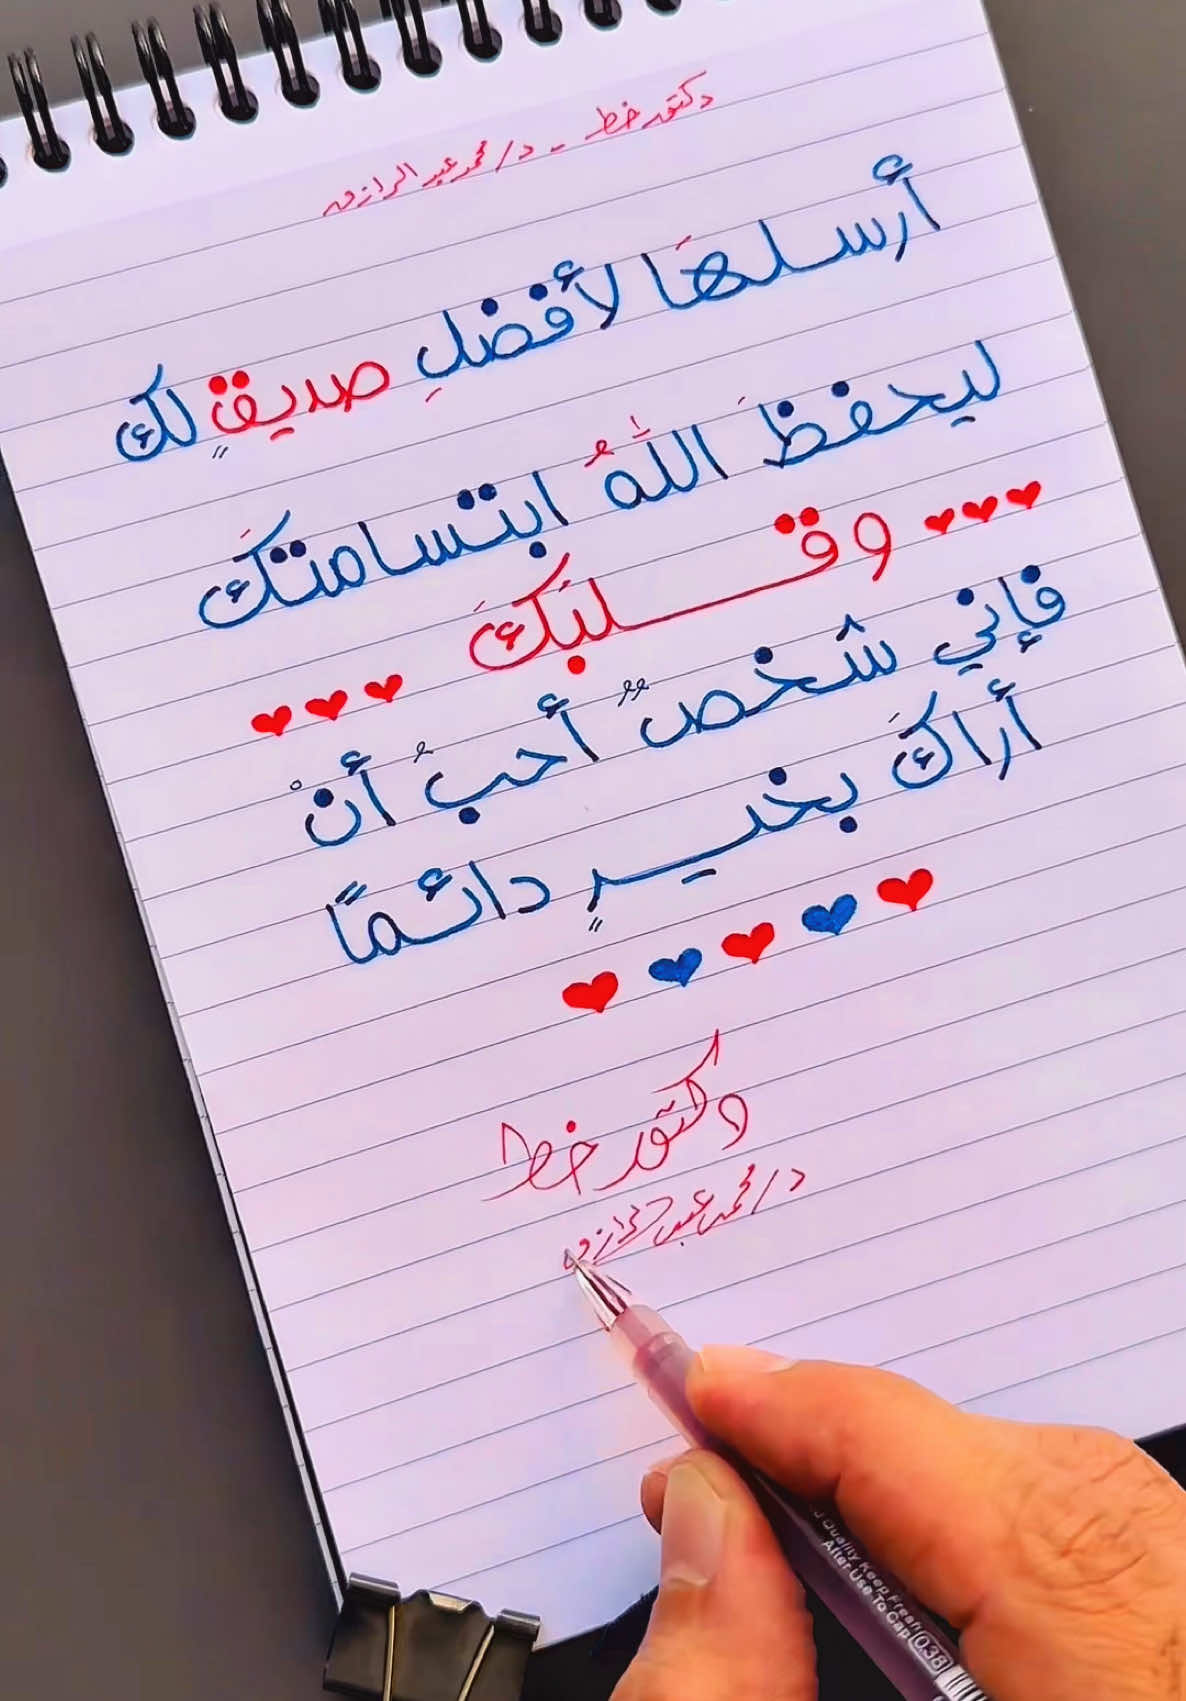 دكتور خط - د/ محمد عبد الرازق
أرسلهَا لأفضلِ صديقٍ لك
ليحفظَ اللهُ ابتسامتكَ
وقـــلبَكَ
فإني شخصٌ أحبُ أنْ
أراكَ بخيـرٍ دائـمًا
دكتور خط
د/ محمد عبد الرازق
Quality Keep Fresh
After Use To Cap
0.38